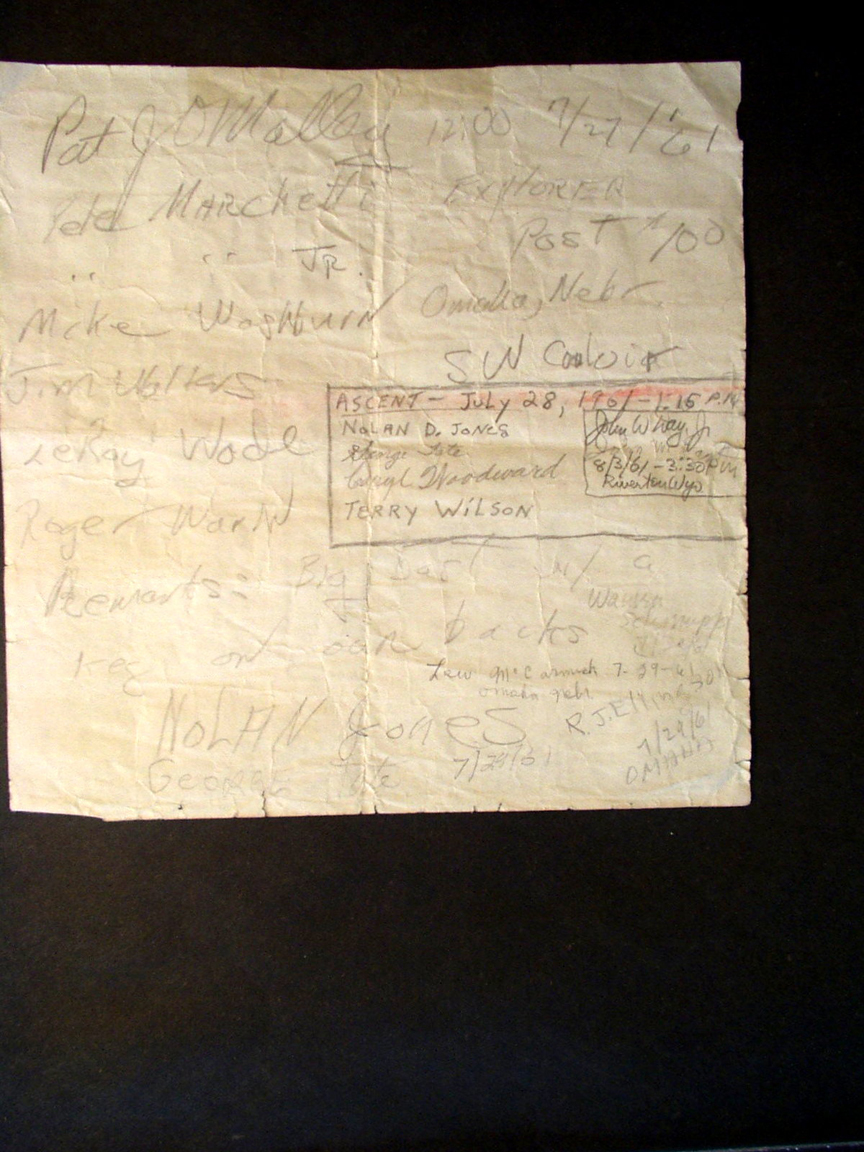 Pat J O'Malley 12:00 7/27/'61
Pete MARCHETTi EXPLORER
" " JR. POST #100
Mike Washburn Omaha, Nebr.
SW
Jim
LeRay Wade
ASCENT - JULY 28, 1961 - 1:15 P.M
NOLAN D. JONES
George Tate
Woodward
TERRY WILSON
John W Jr
8/3/61 - 2:30 PM
Riverton Wyo
Roger
Remarks: Big w/ a
keg on our backs
Lew McCormick 7-29-61
Omaha Nebr.
NOLAN Jones
R.J.
7/29/61
OMAHA
GEORGE Tate 7/28/61